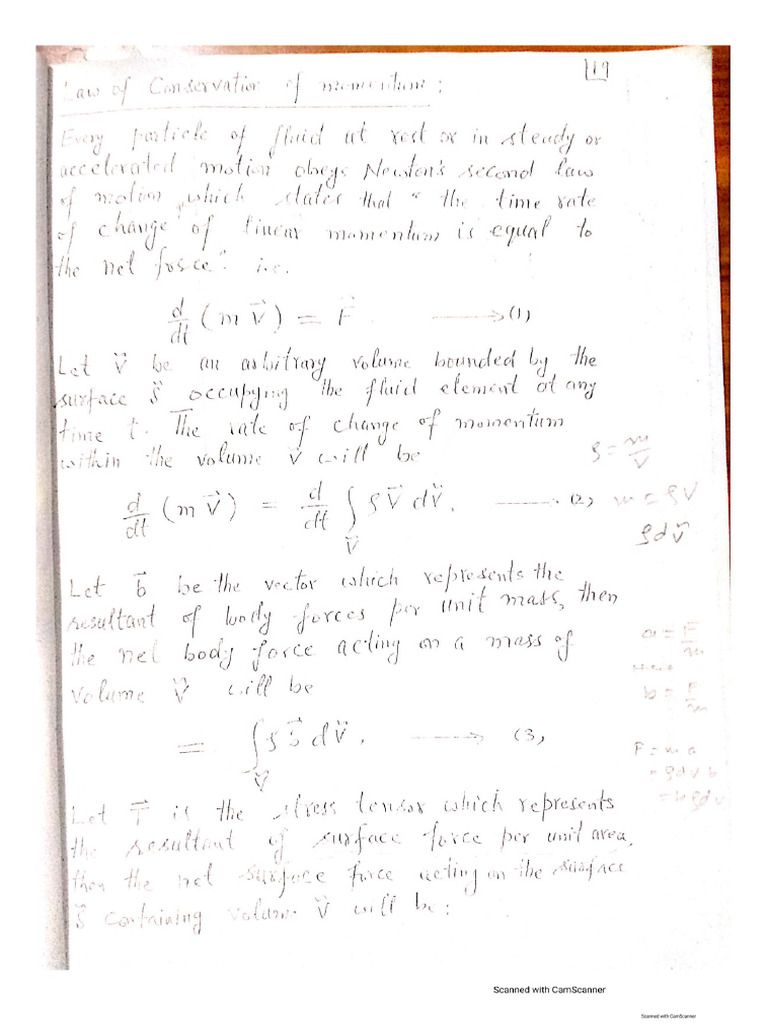 Law of Conservation of momentum:
119
Every particle of fluid at rest or in steady or
accelerated motion obeys Newton's second law
of motion which states that "the time rate
of change of linear momentum is equal to
the net force". i.e.
d/dt (m V⃗) = F⃗ ⟶ (1)
Let V̆ be an arbitrary volume bounded by the
surface S̆ occupying the fluid element at any
time t. The rate of change of momentum
within the volume V̆ will be
ρ = m/V
d/dt (m V⃗) = d/dt ∫_V̆ ρ V⃗ dV̆, ⟶ (2)
m = ρV
ρdV̆
Let b⃗ be the vector which represents the
resultant of body forces per unit mass, then
the net body force acting on a mass of
volume V̆ will be
a = F/m
b = F/m
= ∫_V̆ ρ b⃗ dV̆, ⟶ (3)
F = m a
= ρdv b
= b ρdv
Let T⃗ is the stress tensor which represents
the resultant of surface force per unit area,
then the net surface force acting on the surface
S̆ containing volume V̆ will be:
Scanned with CamScanner
Scanned with CamScanner